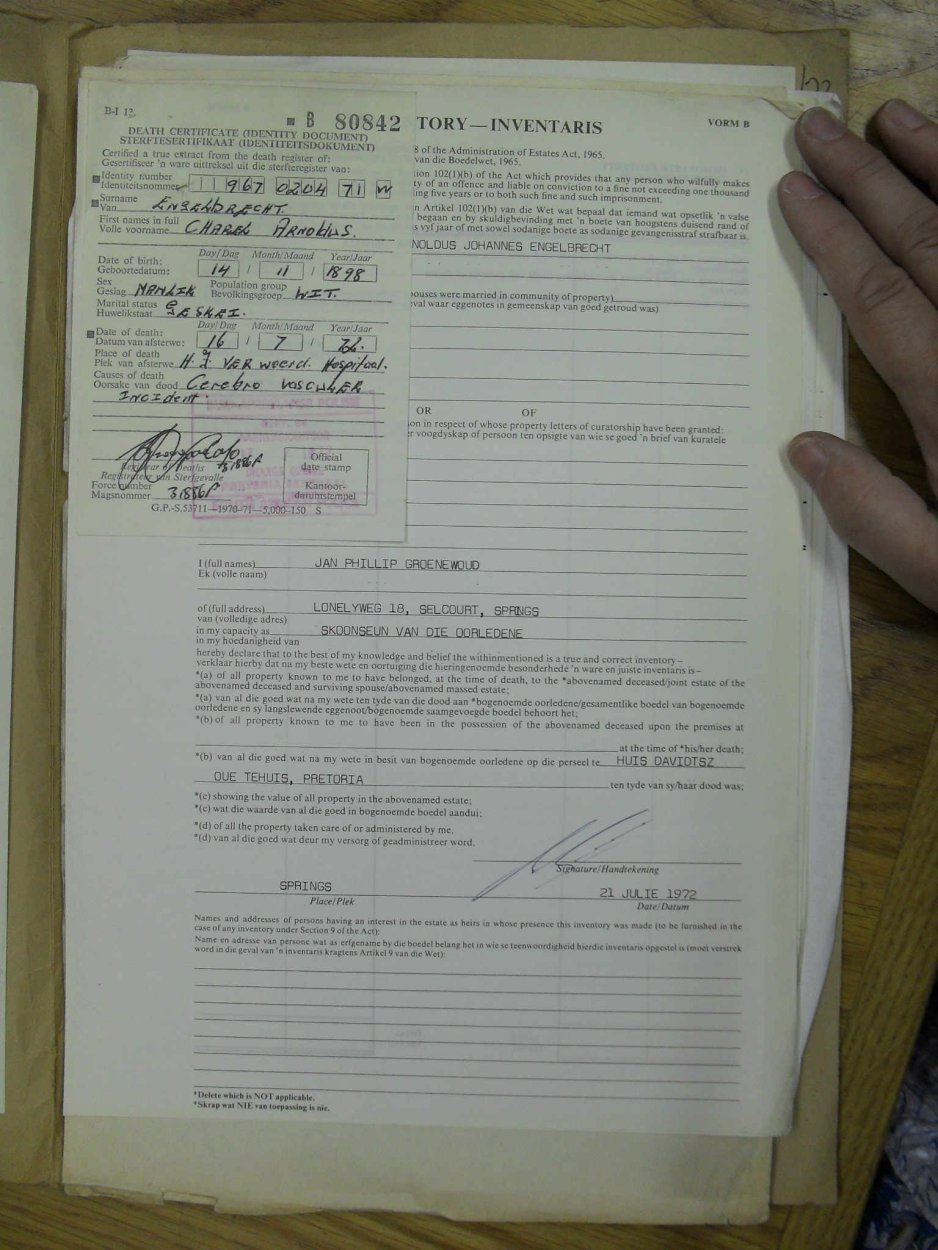 B-I 12.
B 80842
DEATH CERTIFICATE (IDENTITY DOCUMENT)
STERFTESERTIFIKAAT (IDENTITEITSDOKUMENT)
Certified a true extract from the death register of:
Gesertifiseer 'n ware uittreksel uit die sterfteregister van:
Identity number
Identiteitsnommer 11 967 0204 71 W
Surname
Van ENGELBRECHT.
First names in full
Volle voorname CHAREL ARNOLDUS.
Day/Dag Month/Maand Year/Jaar
Date of birth:
Geboortedatum: 14 / 11 / 1898
Sex
Geslag MANLIK Population group
Bevolkingsgroep WIT.
Marital status
Huwelikstaat GESKEI.
Day/Dag Month/Maand Year/Jaar
Date of death:
Datum van afsterwe: 16 / 7 / 72.
Place of death
Plek van afsterwe H.F. VERwoerd. Hospitaal.
Causes of death
Oorsake van dood Cerebro VASCULER
INCIdent.
Registrar of Deaths 31886P
Registrateur van Sterfgevalle
Force number
Magsnommer 31886P
Official
date stamp
Kantoor-
datumstempel
G.P.-S.53711—1970-71—5,000-150 S
TORY—INVENTARIS VORM B
8 of the Administration of Estates Act, 1965.
van die Boedelwet, 1965.
ion 102(1)(b) of the Act which provides that any person who wilfully makes
ty of an offence and liable on conviction to a fine not exceeding one thousand
ing five years or to both such fine and such imprisonment.
n Artikel 102(1)(b) van die Wet wat bepaal dat iemand wat opsetlik 'n valse
begaan en by skuldigbevinding met 'n boete van hoogstens duisend rand of
s vyl jaar of met sowel sodanige boete as sodanige gevangenisstraf strafbaar is.
NOLDUS JOHANNES ENGELBRECHT
pouses were married in community of property)
eval waar eggenotes in gemeenskap van goed getroud was)
OR OF
on in respect of whose property letters of curatorship have been granted:
r voogdyskap of persoon ten opsigte van wie se goed 'n brief van kuratele
I (full names) JAN PHILLIP GROENEWOUD
Ek (volle naam)
of (full address) LONELYWEG 18, SELCOURT, SPRINGS
van (volledige adres)
in my capacity as SKOONSEUN VAN DIE OORLEDENE
in my hoedanigheid van
hereby declare that to the best of my knowledge and belief the withinmentioned is a true and correct inventory—
verklaar hierby dat na my beste wete en oortuiging die hieringenoemde besonderhede 'n ware en juiste inventaris is—
*(a) of all property known to me to have belonged, at the time of death, to the *abovenamed deceased/joint estate of the
abovenamed deceased and surviving spouse/abovenamed massed estate;
*(a) van al die goed wat na my wete ten tyde van die dood aan *bogenoemde oorledene/gesamentlike boedel van bogenoemde
oorledene en sy langslewende eggenoot/bogenoemde saamgevoegde boedel behoort het;
*(b) of all property known to me to have been in the possession of the abovenamed deceased upon the premises at
at the time of *his/her death;
*(b) van al die goed wat na my wete in besit van bogenoemde oorledene op die perseel te HUIS DAVIDTSZ
OUE TEHUIS, PRETORIA ten tyde van sy/haar dood was;
*(c) showing the value of all property in the abovenamed estate;
*(c) wat die waarde van al die goed in bogenoemde boedel aandui;
*(d) of all the property taken care of or administered by me.
*(d) van al die goed wat deur my versorg of geadministreer word.
Signature/Handtekening
SPRINGS 21 JULIE 1972
Place/Plek Date/Datum
Names and addresses of persons having an interest in the estate as heirs in whose presence this inventory was made (to be furnished in the
case of any inventory under Section 9 of the Act):
Name en adresse van persone wat as erfgename by die boedel belang het in wie se teenwoordigheid hierdie inventaris opgestel is (moet verstrek
word in die geval van 'n inventaris kragtens Artikel 9 van die Wet):
*Delete which is NOT applicable.
*Skrap wat NIE van toepassing is nie.